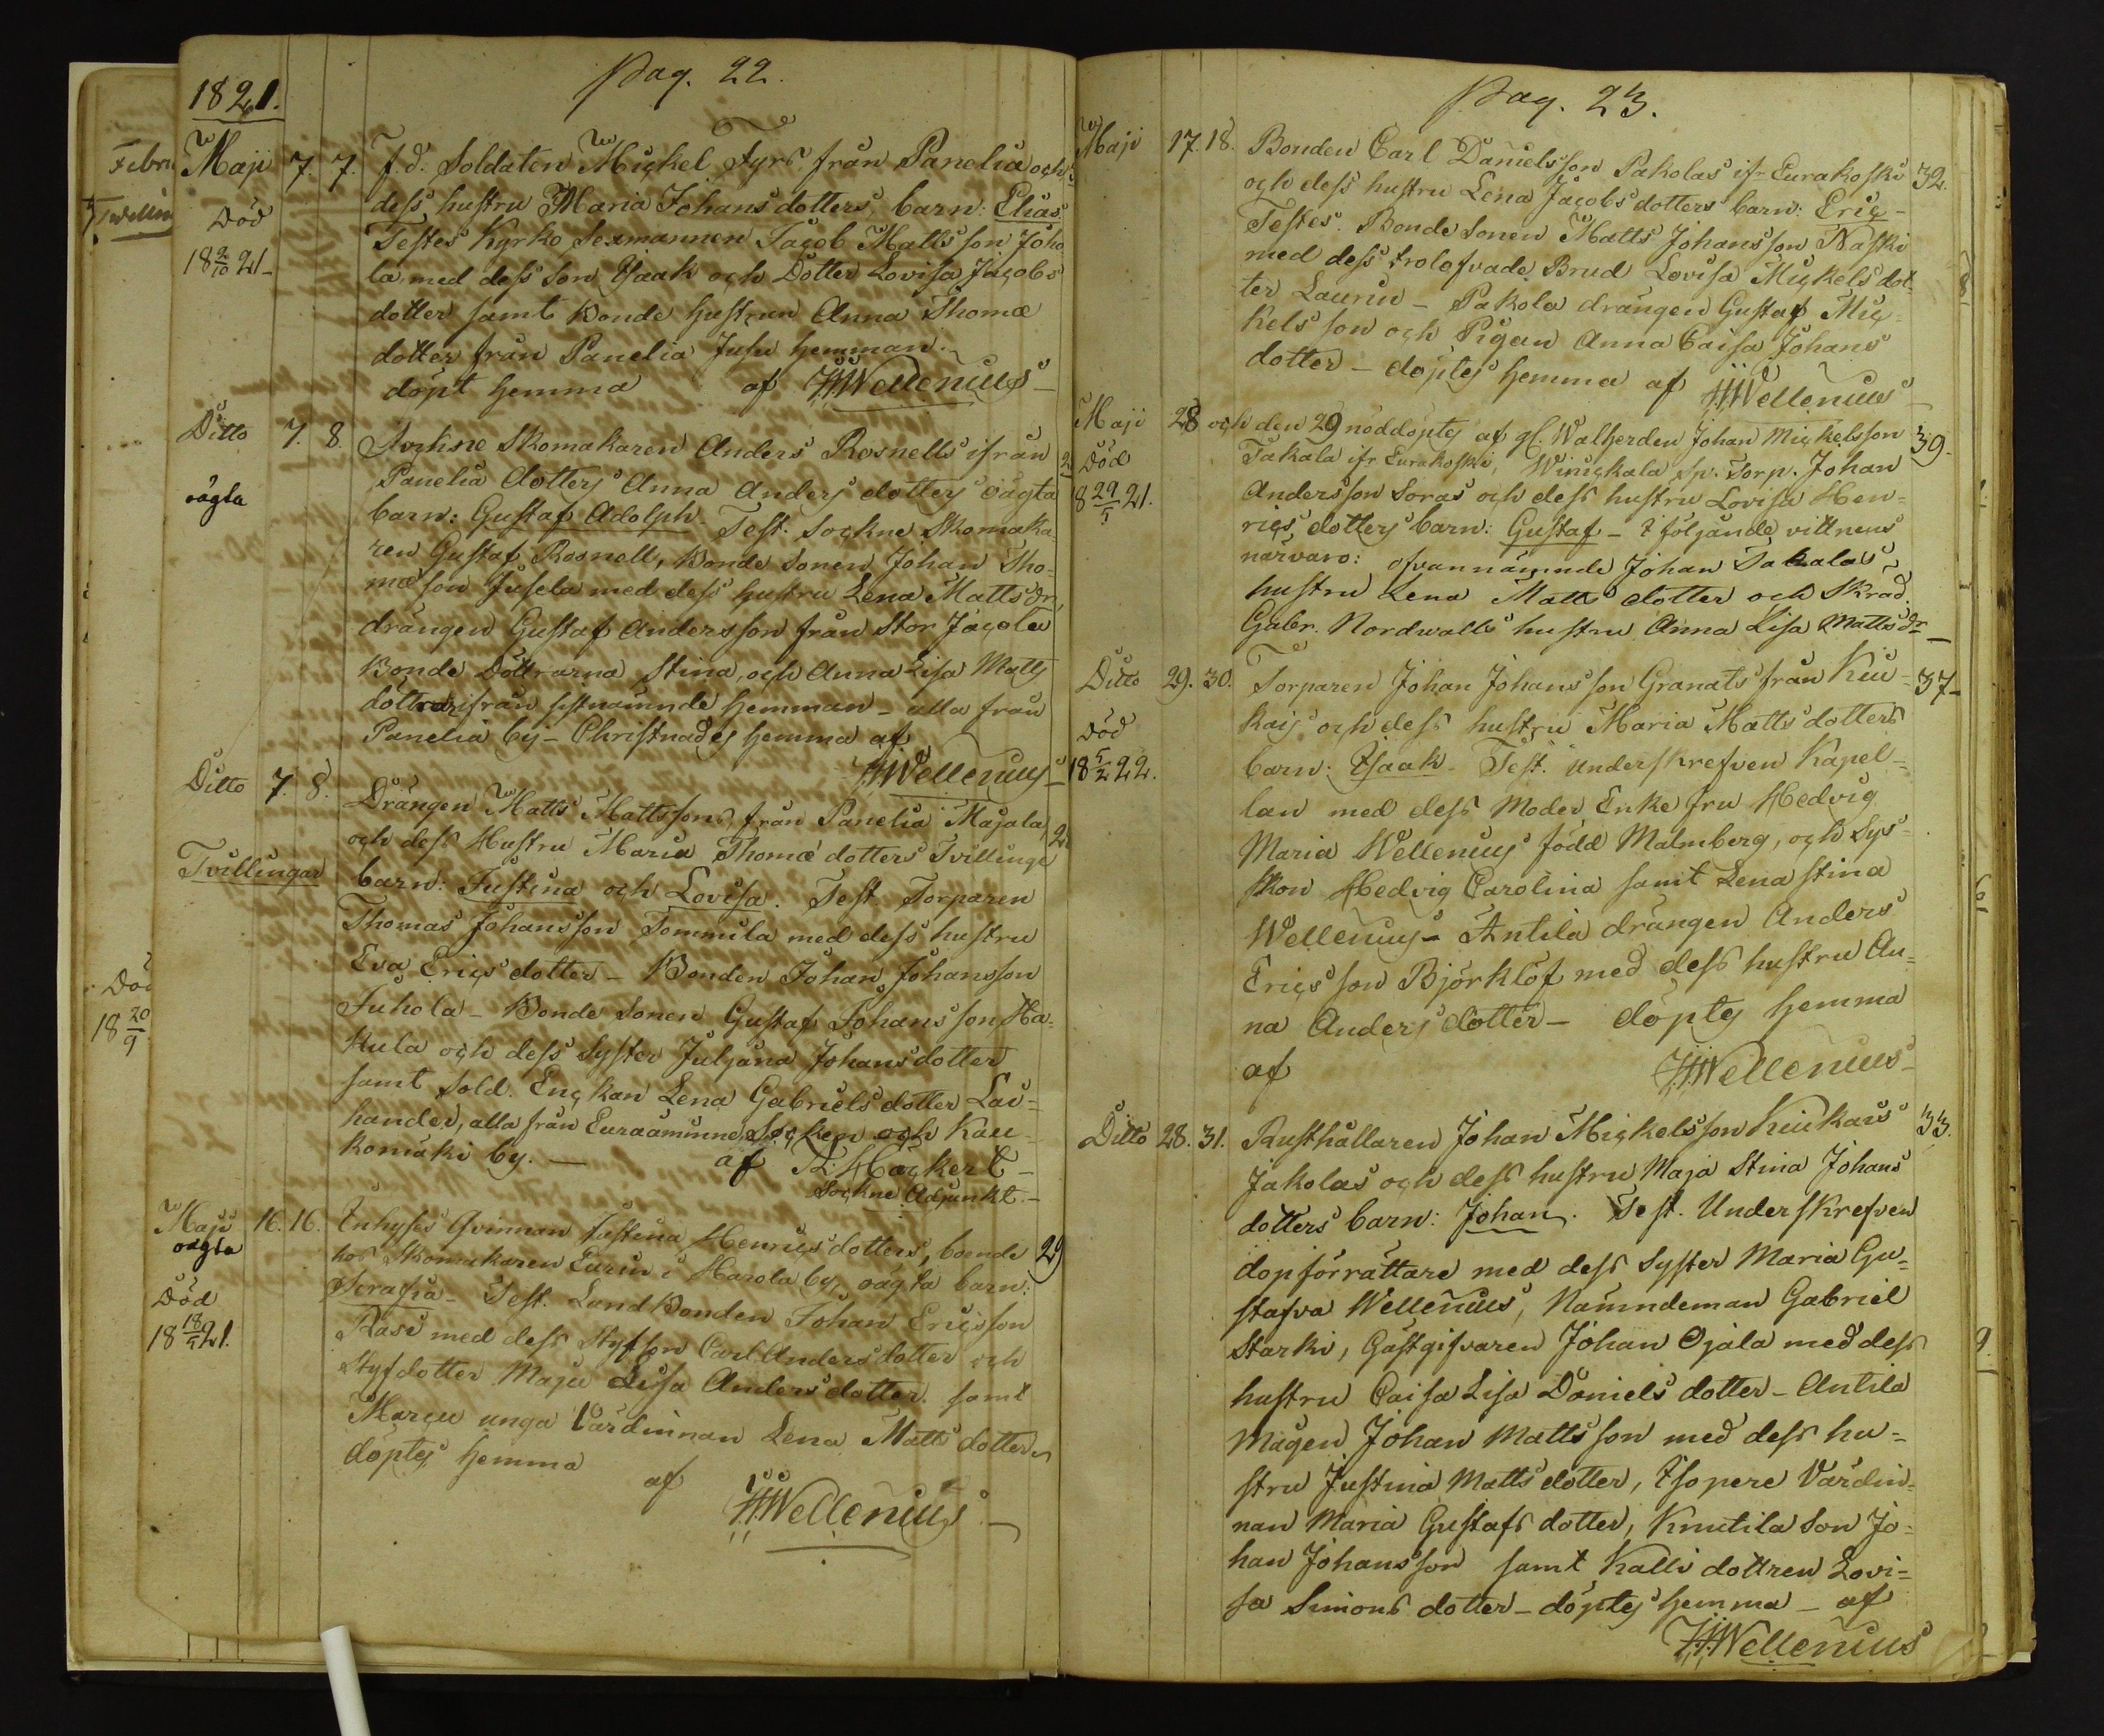 Pag. 22.
1821.
Febru
Tvilling
Maji 7. 7. f.d. Soldaten Mickel Fyrs från Panelia och
Död dess hustru Maria Johans dotters, barn: Elias.
18 2/10 21 Testes Kyrko Sexmannen Jacob Mattsson Joho
la, med dess son Isaak och Dotter Lovisa Jacobs
dotter samt Bonde hustrun Anna Thomæ
dotter från Panelia Jusu hemman.
döpt hemma af JHWellenius
Ditto 7. 8. Sockne Skomakaren Anders Rosnells ifrån
oägta Panelia dotters Anna Anders dotters oägta
barn: Gustaf Adolph. Test: Sockne Skomaka-
ren Gustaf Rosnell, Bonde Sonen Johan Tho-
mæson Jusela med dess hustru Lena Matts dr,
drängen Gustaf Andersson från Stor Jacola
Bonde Döttrarna Stina, och Anna Lisa Matts
döttrar ifrån sistnämnde hemman - alla från
Panelia by - Christnades hemma af
JHWellenius
Ditto 7. 8. Drängen Matts Mattssons, från Panelia Majala
och dess Hustru Maria Thomæ dotters Tvillinge
Tvillingar barn: Justina och Lovisa. Test. Torparen
Thomas Johansson Tommila med dess hustru
Eva Erics dotter - Bonden Johan Johansson
Död Juhola - Bonde Sonen Gustaf Johansson Ha-
18 20/9 kula och dess Syster Juljana Johans dotter
samt Sold. Enckan Lena Gabriels dotter Lau-
hander, alla från Euraåminne Socken och Kau-
komäki by. - af A: Höckert
Sockne Adjunkt.
Maji 16. 16. Inhyses Qvinnan Justina Henrics dotters, boende 29
oägta hos Skomakaren Eurin i Harola by, oägta barn:
Död Serafia - Test. Landbonden Johan Ericsson
18 18/5 21. Rasi med dess Styfson Carl Anders dotter och
Styfdotter Maja Lisa Anders dotter samt
Marcu unga Värdinnan Lena Matts dotter
döptes hemma af
JHWellenius
Pag. 23.
Maji 17. 18. Bonden Carl Danielsson Pakolas ifr. Eurakoski 32.
och dess hustru Lena Jacobs dotters barn: Eric -
Testes. Bonde Sonen Matts Johansson Naski
med dess trolofvade Brud Lovisa Mickels dot-
ter Laurin - Pakola drängen Gustaf Mic-
kelsson och Pigan Anna Caisa Johans
dotter - döptes hemma af JHWellenius
Maji 28 och den 29 nöddöptes af gl. Walherden Johan Mickelsson 39.
Död Takala ifr Eurakoski, Winickala Sp. Torp. Johan
18 29/5 21. Andersson Soras och dess hustru Lovisa Hen-
rics dotters barn: Gustaf - I följande vittnens
närvaro: ofvannämnde Johan Takalas
hustru Lena Matts dotter och Skräd.
Gabr. Nordwalls hustru Anna Lisa Matts dr
Ditto 29. 30. Torparen Johan Johansson Granats från Kiu- 37
kais och dess hustru Maria Matts dotters
Död barn: Isaak - Test. Underskrefven Kapel-
18 5/2 22. lan med dess Moder Enke fru Hedvig
Maria Wellenius född Malmberg, och Sys-
kon Hedvig Carolina samt Lena Stina
Wellenius - Antila drängen Anders
Ericsson Björklöf med dess hustru An-
na Anders dotter - döptes hemma
af JHWellenius
Ditto 28. 31. Rusthållaren Johan Mickelsson Kiukais 33.
Jakolas och dess hustru Maja Stina Johans
dotters barn: Johan. Test. Underskrefven
dopförrättare med dess Syster Maria Gu-
stafva Wellenius, Nämndeman Gabriel
Starki, Gästgifvaren Johan Ojala med dess
hustru Caisa Lisa Daniels dotter - Antila
Mågen Johan Mattsson med dess hu-
stru Justina Matts dotter, Isopere Värdin-
nan Maria Gustafs dotter, Knutila Son Jo-
han Johansson samt Kalli dottren Lovi-
sa Simons dotter - döptes hemma - af
JHWellenius